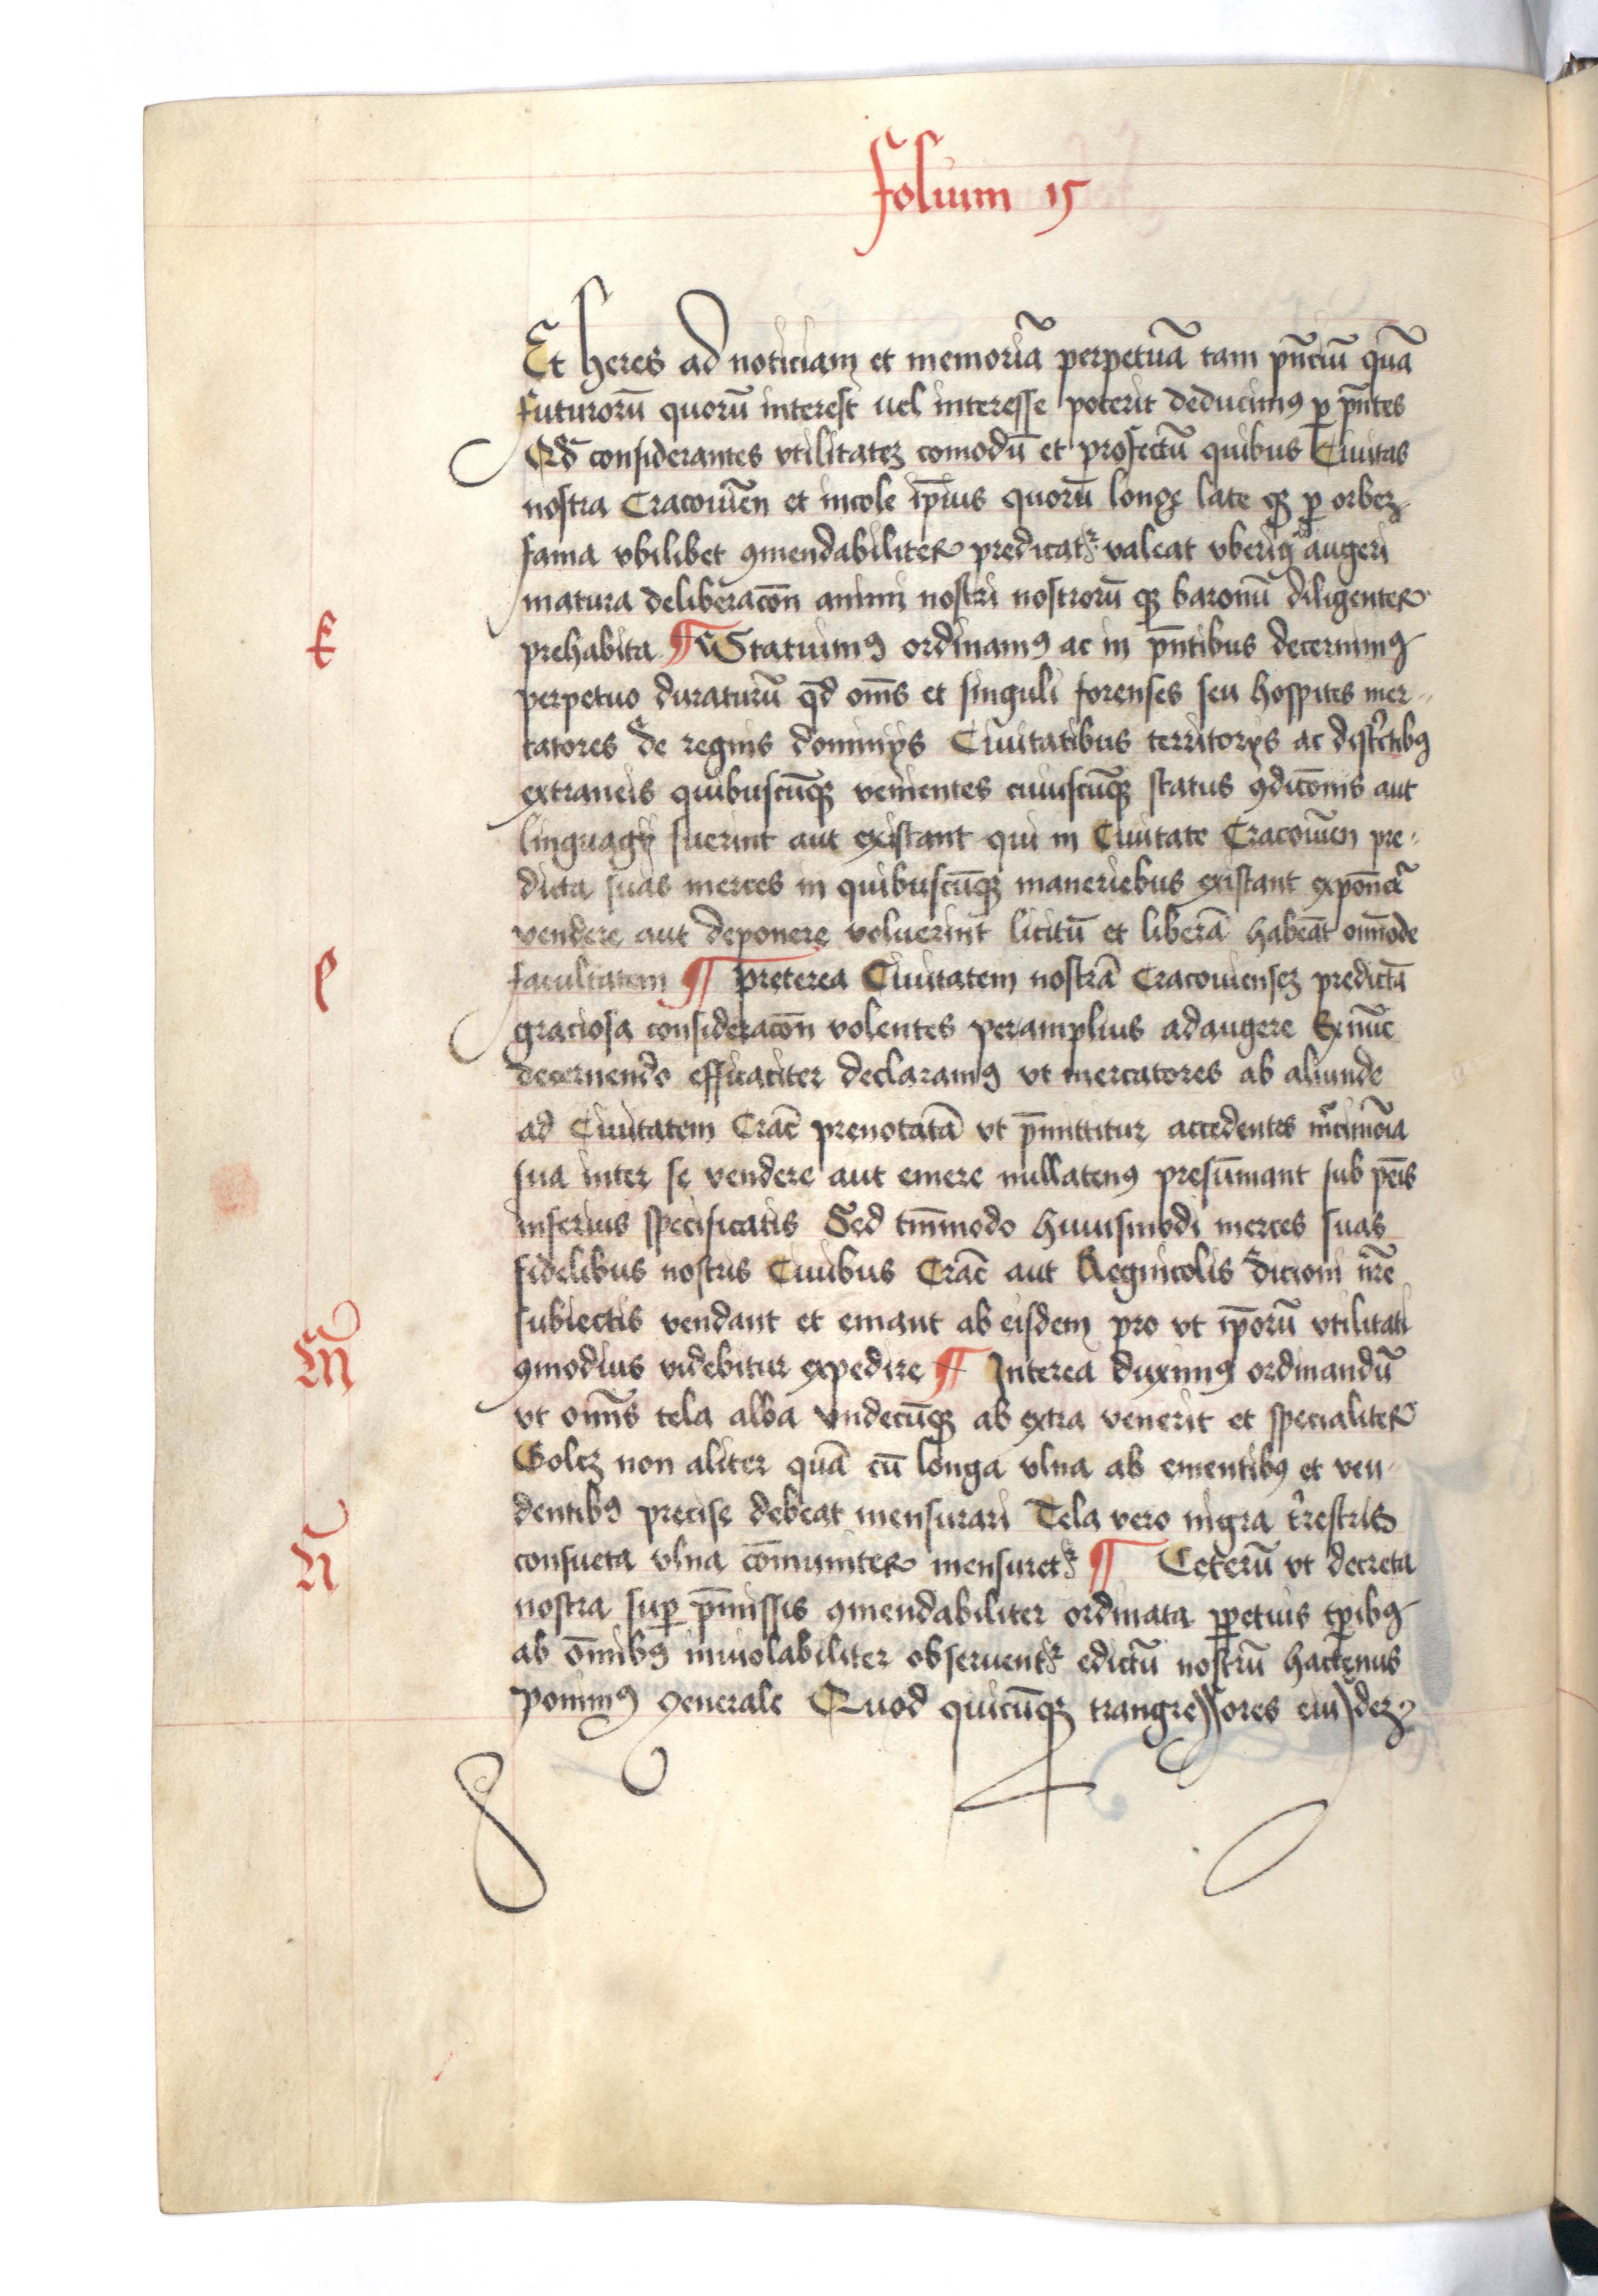 folium 15
Et heres ad noticiam et memoriā perpetuā tam pn̄ciū quā
futurorū quorū interest uel interesse poterit deducimꝯ ꝑ pn̄tes
Qd̄ considerantes vtilitateꝫ comodū et profectū quibus Ciuitas
nostra Cracouien̄ et incole ip̄ius quorū longe late qꝫ ꝑ orbeꝫ
fama vbilibet ꝯmendabiliter predicatr valeat vberiꝯ augeri
matura deliberacōn animi nostri nostrorū qꝫ baronū diligenter
K
prehabita ¶ Statuimꝯ ordinamꝯ ac in pn̄tibus decernimꝯ
perpetuo duraturū qd̄ om̄s et singuli forenses seu hospites mer-
catores de regnis dominijs Ciuitatibus territorijs ac distctibꝯ
extraneis quibuscūqꝫ venientes cuiuscūqꝫ status ꝯdicōnis aut
linguagij fuerint aut existant qui in Ciuitate Cracouien̄ pre-
dicta suas merces in quibuscūqꝫ maneriebus existant expōne
vendere aut deponere voluerint licitū et liberā habeāt omīode
l
facultatem ¶ Preterea Ciuitatem nostrā Cracouienseꝫ predictā
graciosa consideracōn volentes peramplius adaugere Exnūc
decernendo efficaciter declaramꝯ vt mercatores ab aliunde
ad Ciuitatem Crac̄ prenotatā vt p̄mittitur accedentes mcimōia
sua inter se vendere aut emere nullatenꝯ presūmant sub pēis
inferius specificatis Sed tm̄modo huiusmodi merces suas
fidelibus nostris Ciuibus Crac̄ aut Regnicolis dicioni nr̄e
subiectis vendant et emant ab eisdem pro vt ip̄orū vtilitati
M
ꝯmodius videbitur expedire ¶ Interea duximꝯ ordinandū
vt om̄is tela alba vndecūqꝫ ab extra venerit et specialiter
Golcꝫ non aliter quā cū longa vlna ab ementibꝯ et ven-
dentibꝯ precise debeat mensurari Tela vero nigra trestris
N
consueta vlna cōmuniter mensuretr ¶ Ceterū vt decreta
nostra suꝑ p̄missis ꝯmendabiliter ordinata ꝑpetuis tꝑibꝯ
ab om̄ibꝯ inuiolabiliter obseruentr edictū nostrū hactenus
ponimꝯ generale Quod quicūqꝫ trangressores eiusdeꝫ